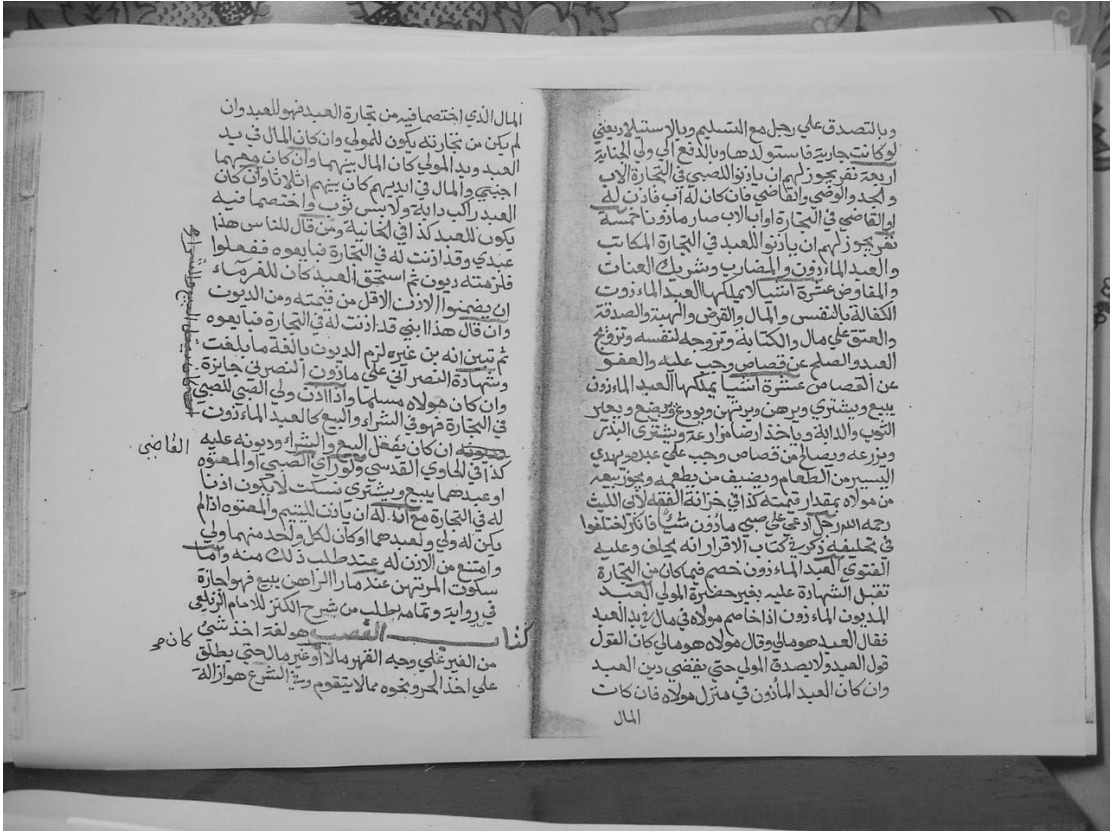 وبالتصدق علي رجل مع التسليم وبالاستيلاد يعني
لو كانت جارية فاستولدها وبالدفع الي ولي الجناية
اربعة نفر يجوز لهم ان ياذنوا للصبي في التجارة الاب
والجد والوصي والقاضي فان كان له اب فاذن له
القاضي في التجارة او اب الاب صار ماذونا خمسة
نفر يجوز لهم ان ياذنوا للعبد في التجارة المكاتب
والعبد الماءذون والمضارب وشريك العنان
والمفاوض عشرة اشيا لا يملكها العبد الماءذون
الكفالة بالنفس والمال والقرض والهبة والصدقة
والعتق علي مال والكتابة وتزوجه لنفسه وتزويج
العبد والصلح عن قصاص وجب عليه والعفو
عن القصاص عشرة اشيا يملكها العبد الماءذون
يبيع ويشتري ويرهن ويرتهن ويودع ويبضع ويعير
الثوب والدابة وياخذ ارضا مزارعة ويشتري البذر
ويزرعه ويصالح من قصاص وجب علي عبده ويهدي
اليسير من الطعام ويضيف من يطعمه ويجوز بيعه
من مولاه بمقدار قيمته كذا في خزانة الفقه لابي الليث
رحمه الله رجل ادعي علي صبي ماذون شيا فانكر اختلفوا
في تحليفه ذكر في كتاب الاقرار انه يحلف وعليه
الفتوي العبد الماءذون خصم فيما كان من التجارة
تقبل الشهادة عليه بغير حضرة المولي العبد
المديون الماءذون اذا خاصم مولاه في مال في يد العبد
فقال العبد هو مالي وقال مولاه هو مالي كان القول
قول العبد ولا يصدق المولي حتي يقضي دين العبد
وان كان العبد المأذون في منزل مولاه فان كان
المال
المال الذي اختصما فيه من تجارة العبد فهو للعبد وان
لم يكن من تجارته يكون للمولي وان كان المال في يد
العبد ويد المولي كان المال بينهما وان كان معهما
اجنبي والمال في ايديهم كان بينهم اثلاثا وان كان
العبد راكب دابة ولابس ثوب واختصما فيه
يكون للعبد كذا في الخانية ومن قال للناس هذا
عبدي وقد اذنت له في التجارة فبايعوه ففعلوا
فلزمته ديون ثم استحق العبد كان للغرماء
ان يضمنوا الاذن الاقل من قيمته ومن الديون
وان قال هذا ابني قد اذنت له في التجارة فبايعوه
ثم تبين انه بن غيره لزم الديون بالغة ما بلغت
وشهادة النصراني علي ماذون النصرني جائزة
وان كان مولاه مسلما واذا اذن ولي الصبي للصبي
في التجارة فهو في الشراء والبيع كالعبد الماءذون
ان كان يعقل البيع والشراء وديونه عليه
كذا في الحاوي القدسي ولو راي الصبي او المعتوه
القاضي
او عبدهما يبيع ويشتري فسكت لا يكون اذنا
له في التجارة مع ان له ان ياذن لليتيم والمعتوه اذا لم
يكن له ولي ولعبدهما او كان لكل واحد منهما ولي
وامتنع من الاذن له عند طلب ذلك منه واما
سكوت المرتهن عند ما راا الراهن يبيع فهو اجازة
في رواية وتمامه تطلب من شرح الكنز للامام الزيلعي
كتاب الغصب هو لغة اخذ شي
من الغير علي وجه القهر مالا او غير مال حتي يطلق
كان
علي اخذ الحر ونحوه مما لا يتقوم وفي الشرع هو ازالة